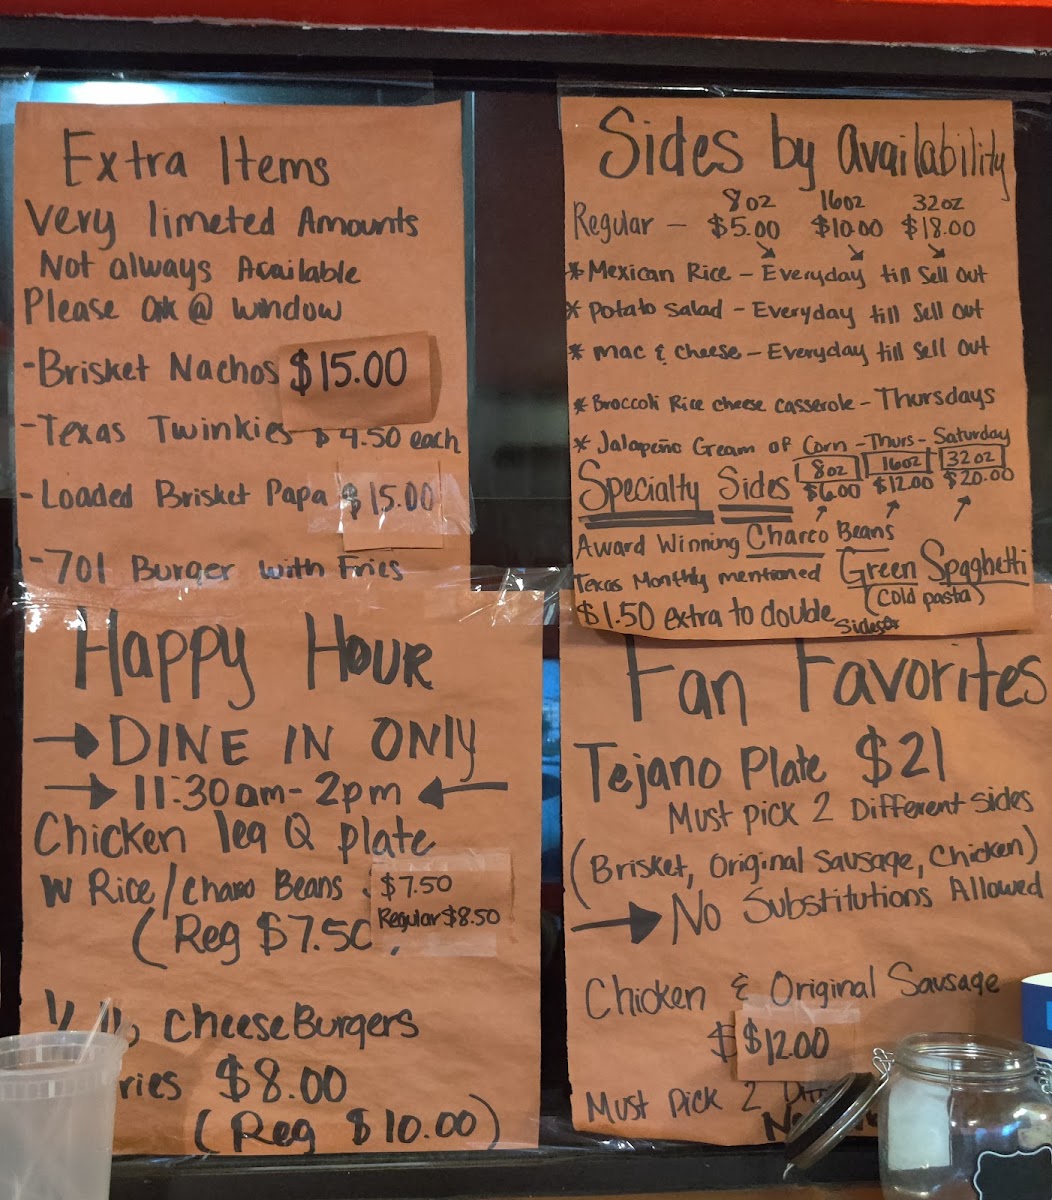 Extra Items
Very limeted Amounts
Not always Available
Please ask @ window
-Brisket Nachos $15.00
-Texas Twinkies $4.50 each
-Loaded Brisket Papa $15.00
-701 Burger with Fries
Sides by Availability
8oz 16oz 32oz
Regular - $5.00 $10.00 $18.00
*Mexican Rice - Everyday till Sell out
*Potato Salad - Everyday till Sell out
*Mac & Cheese - Everyday till Sell out
*Broccoli Rice cheese casserole - Thursdays
*Jalapeño Cream of Corn - Thurs - Saturday
Specialty Sides 8oz 16oz 32oz
$6.00 $12.00 $20.00
Award Winning Charro Beans
Texas Monthly mentioned Green Spaghetti
(cold pasta)
$1.50 extra to double sides
Happy Hour
→ DINE IN ONLY
→ 11:30am - 2pm ←
Chicken leg Q plate
W Rice/Charro Beans $7.50
Regular $8.50
(Reg $7.50
CheeseBurgers
ries $8.00
(Reg $10.00)
Fan Favorites
Tejano Plate $21
Must pick 2 Different Sides
(Brisket, Original Sausage, Chicken)
→ No Substitutions Allowed
Chicken & Original Sausage
$ $12.00
Must Pick 2